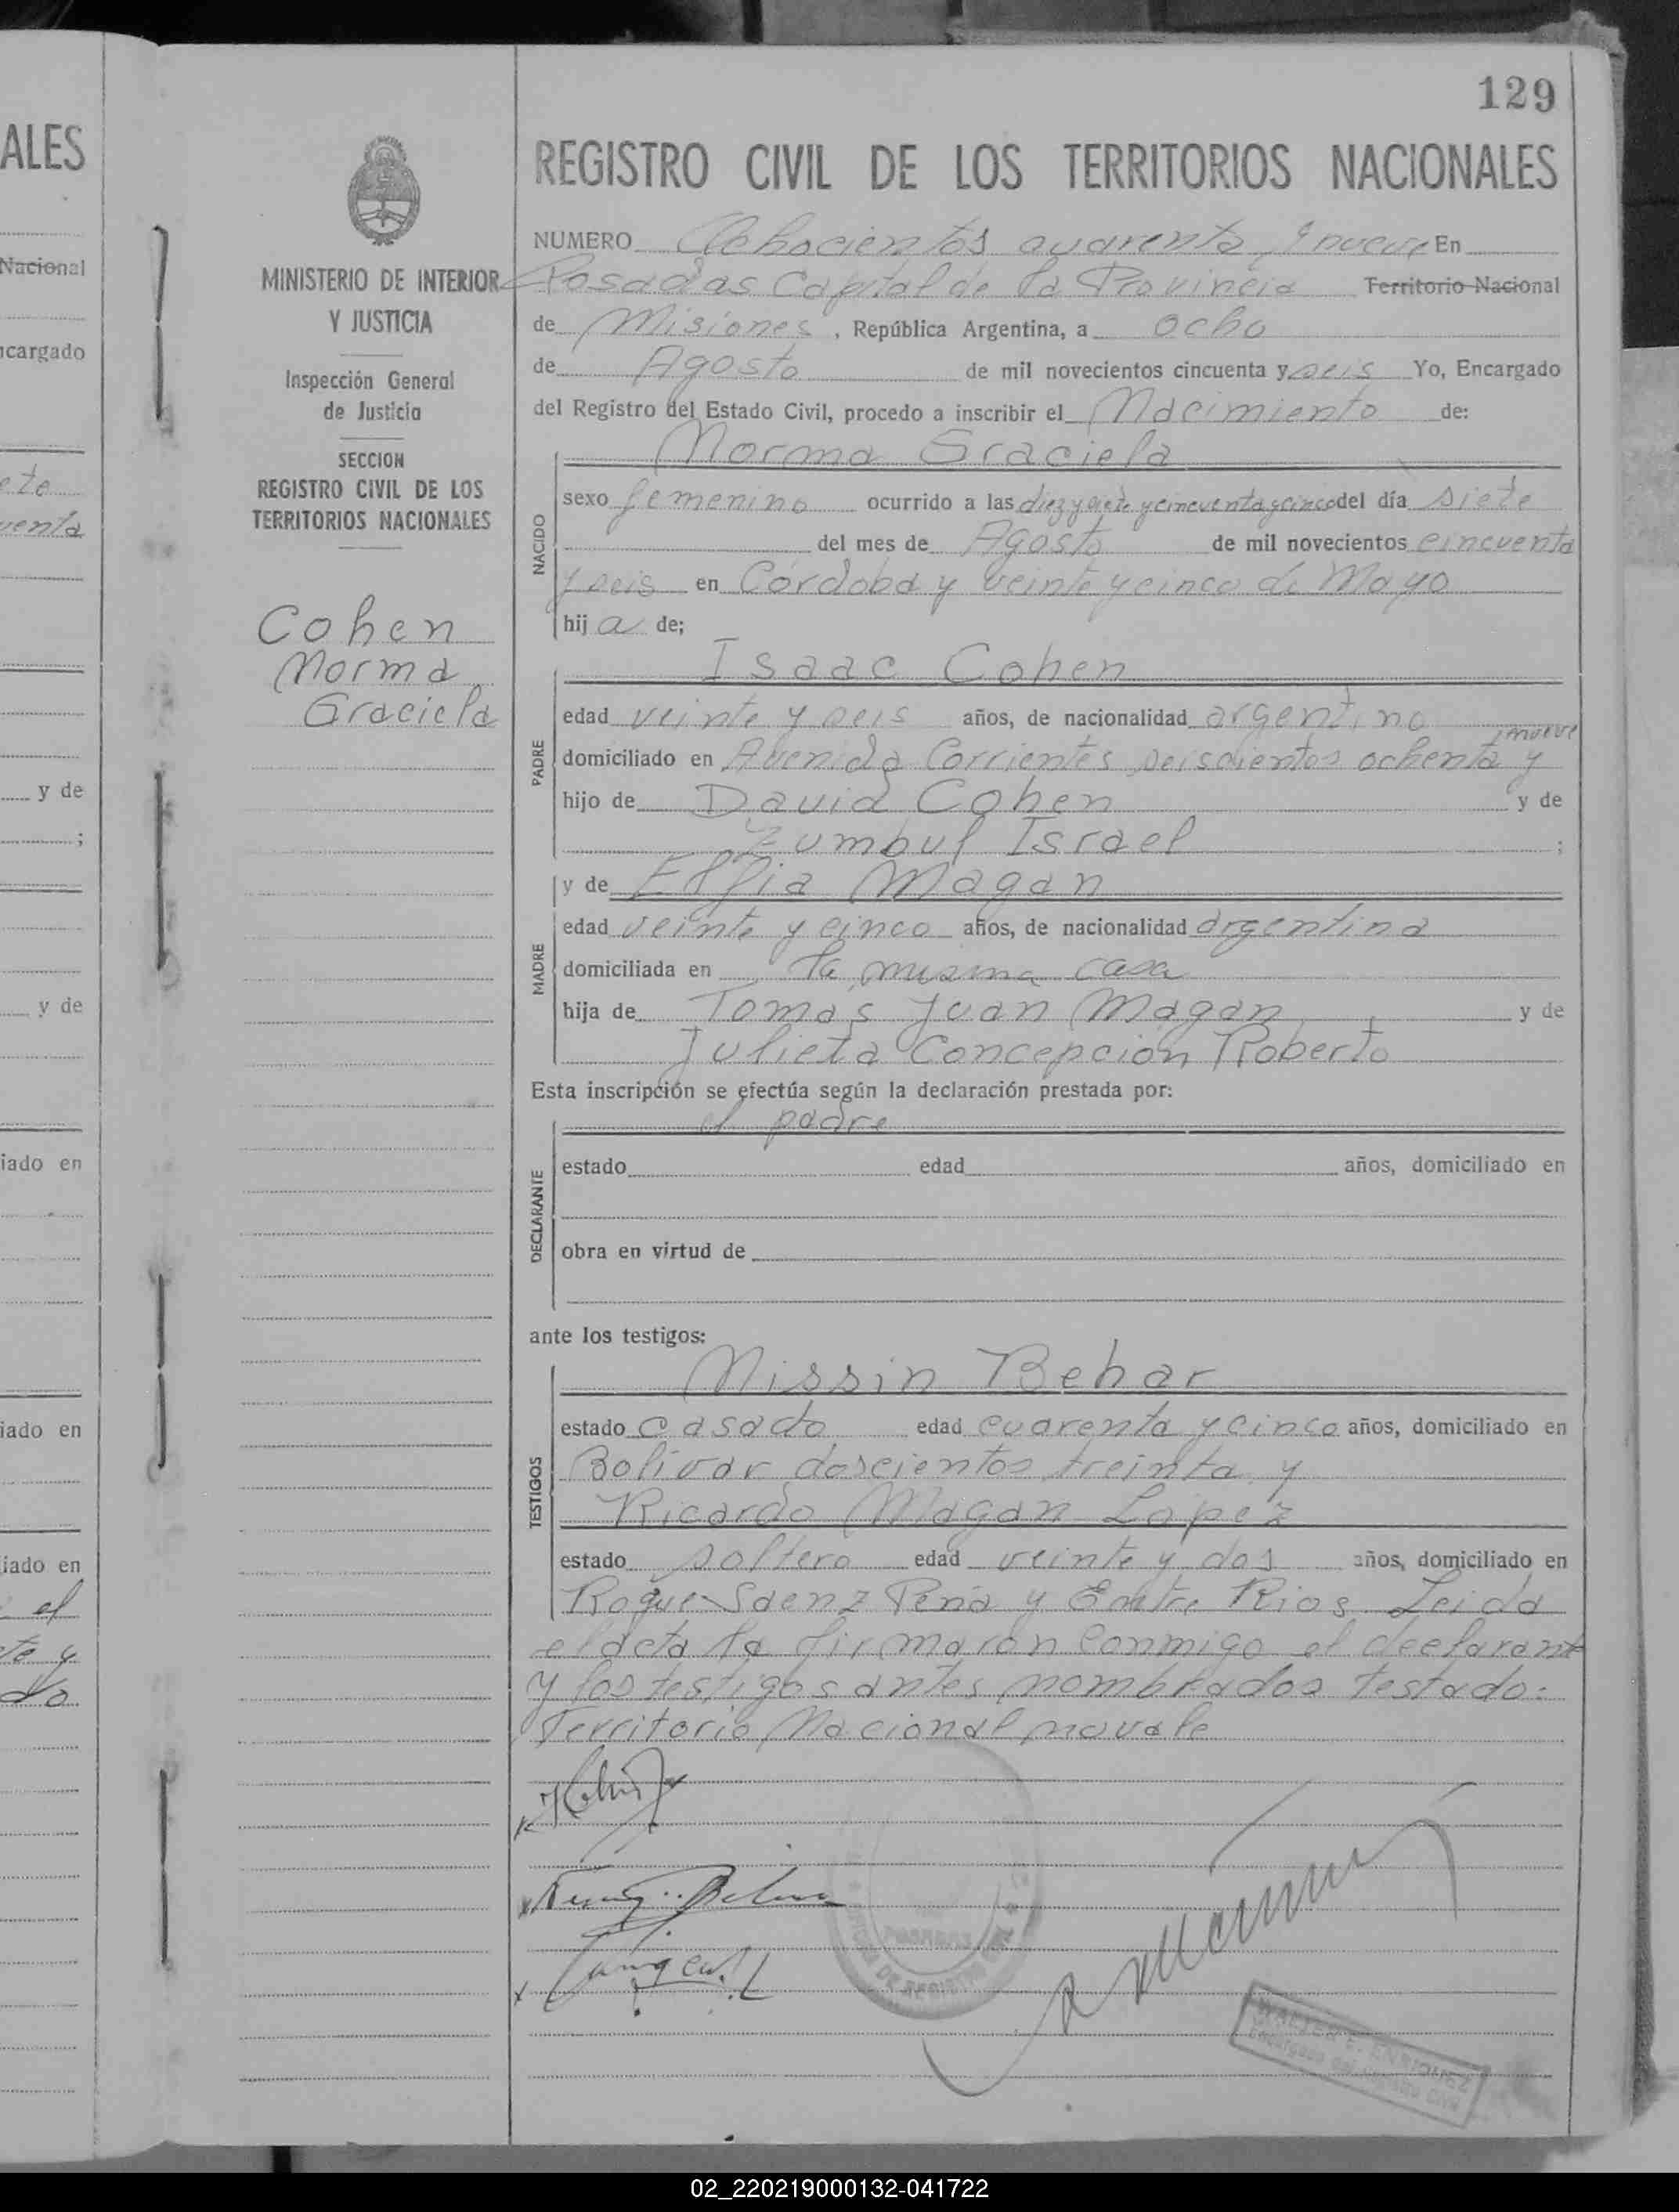 129
ALES
Nacional
ncargado
ete
venta
y de
;
y de
iado en
iado en
iado en
el
te y
do
MINISTERIO DE INTERIOR
Y JUSTICIA
Inspección General
de Justicia
SECCION
REGISTRO CIVIL DE LOS
TERRITORIOS NACIONALES
Cohen
Norma
Graciela
REGISTRO CIVIL DE LOS TERRITORIOS NACIONALES
NUMERO Ochocientos cuarenta y nueve En
Posadas Capital de la Provincia Territorio Nacional
de Misiones, República Argentina, a ocho
de Agosto de mil novecientos cincuenta y seis Yo, Encargado
del Registro del Estado Civil, procedo a inscribir el Nacimiento de:
Norma Graciela
NACIDO
sexo femenino ocurrido a las diez y siete y cincuenta y cinco del día siete
del mes de Agosto de mil novecientos cincuenta
y seis en Córdoba y veinte y cinco de Mayo
hija de;
Isaac Cohen
PADRE
edad veinte y seis años, de nacionalidad argentino
domiciliado en Avenida Corrientes seiscientos ochenta y nueve y
hijo de David Cohen y de
Zumbul Israel ;
y de Elfia Magan
MADRE
edad veinte y cinco años, de nacionalidad argentina
domiciliada en la misma casa
hija de Tomas Juan Magan y de
Julieta Concepcion Roberto
Esta inscripción se efectúa según la declaración prestada por:
el padre
DECLARANTE
estado edad años, domiciliado en
obra en virtud de
ante los testigos:
Nissin Behar
TESTIGOS
estado casado edad cuarenta y cinco años, domiciliado en
Bolivar doscientos treinta y
Ricardo Magan Lopez
estado soltero edad veinte y dos años, domiciliado en
Roque Saenz Peña y Entre Rios Leida
el acta la firmaron conmigo el declarante
y los testigos antes nombrados testado:
Territorio Nacional no vale
POSADAS
WALTER E. ENRIQUEZ
Encargado del Registro Civil
02_220219000132-041722